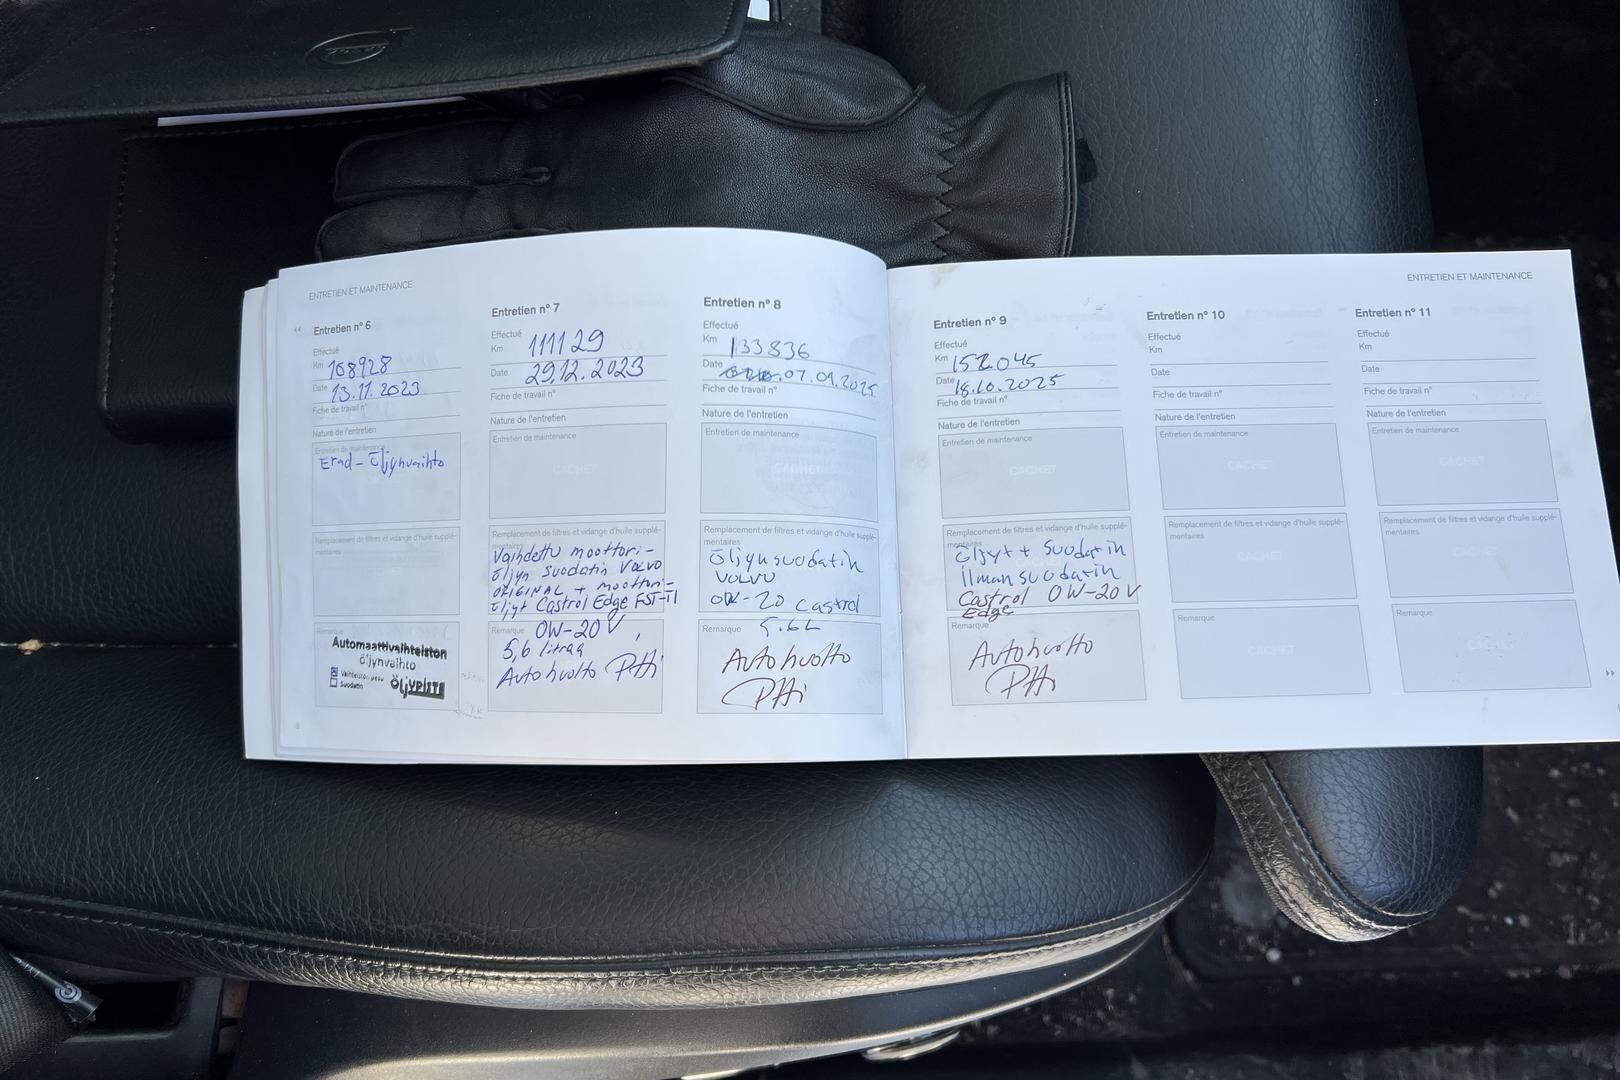 ENTRETIEN ET MAINTENANCE
Entretien nº 6
Effectué
Km 108928
Date 13.11.2023
Fiche de travail nº
Nature de l'entretien
Entretien de maintenance
Erad - öljynvaihto
Remplacement de filtres et vidange d'huile supplé-
mentaires
Remarque
Automaattivaihteiston
öljynvaihto
Suodatin
ÖLJYPISTE
Entretien nº 7
Effectué
Km 111129
Date 29.12.2023
Fiche de travail nº
Nature de l'entretien
Entretien de maintenance
CACHET
Remplacement de filtres et vidange d'huile supplé-
mentaires
Vaihdettu moottori-
öljyn suodatin VOLVO
ORIGINAL + moottori-
öljyt Castrol Edge FST-TI
Remarque
OW-20 V,
5,6 litraa
Autohuolto
Entretien nº 8
Effectué
Km 133836
Date 07.01.2025
Fiche de travail nº
Nature de l'entretien
Entretien de maintenance
CACHET
Remplacement de filtres et vidange d'huile supplé-
mentaires
öljynsuodatin
VOLVO
OW-20 Castrol
Remarque 5.6L
Autohuolto
ENTRETIEN ET MAINTENANCE
Entretien nº 9
Effectué
Km 152.045
Date 18.10.2025
Fiche de travail nº
Nature de l'entretien
Entretien de maintenance
CACHET
Remplacement de filtres et vidange d'huile supplé-
mentaires
öljyt + suodatin
ilmansuodatin
Castrol OW-20 V
Edge
Remarque
Autohuolto
Entretien nº 10
Effectué
Km
Date
Fiche de travail nº
Nature de l'entretien
Entretien de maintenance
CACHET
Remplacement de filtres et vidange d'huile supplé-
mentaires
CACHET
Remarque
CACHET
Entretien nº 11
Effectué
Km
Date
Fiche de travail nº
Nature de l'entretien
Entretien de maintenance
CACHET
Remplacement de filtres et vidange d'huile supplé-
mentaires
CACHET
Remarque
CACHET